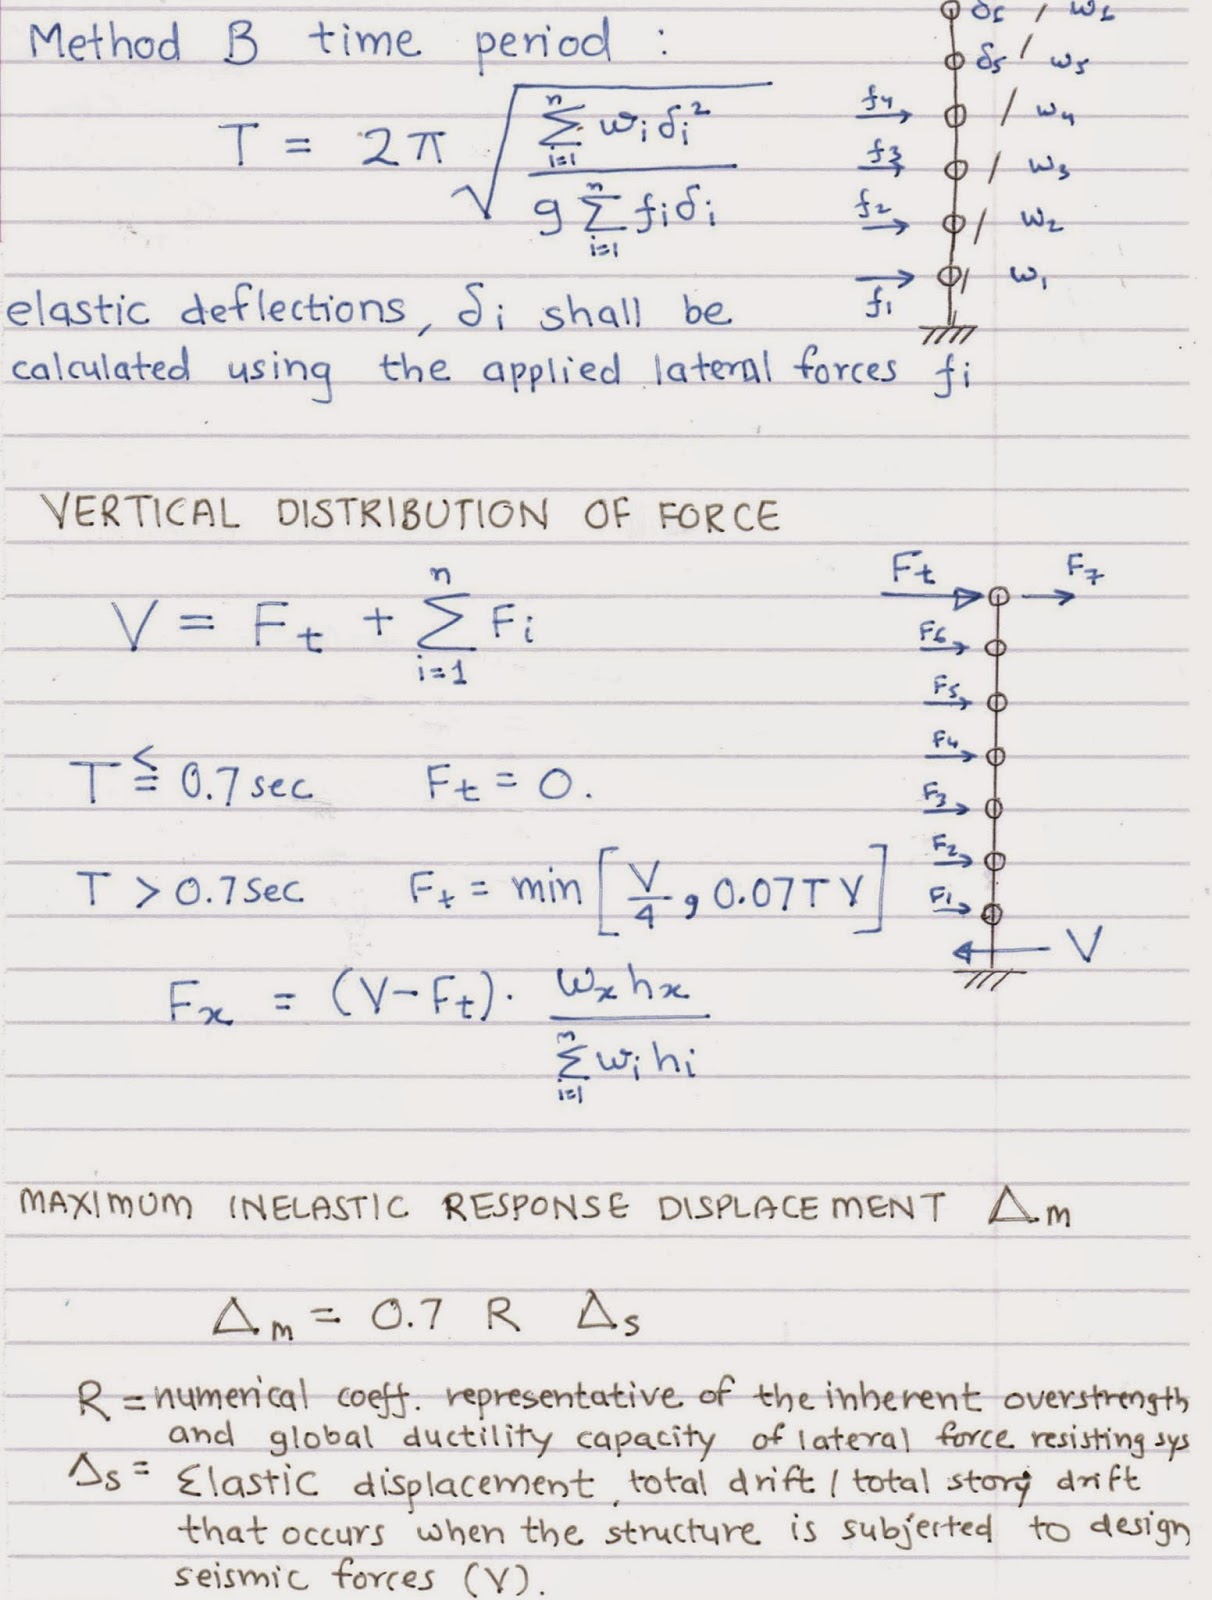 δ6 / w6
Method B time period :
δ5 / w5
T = 2π √ Σ(i=1 to n) wi δi² / g Σ(i=1 to n) fi δi
f4 / w4
f3 / w3
f2 / w2
f1 w1
elastic deflections, δi shall be
calculated using the applied lateral forces fi
VERTICAL DISTRIBUTION OF FORCE
V = Ft + Σ(i=1 to n) Fi
Ft F7
F6
F5
F4
F3
F2
F1
V
T ≦ 0.7 sec Ft = 0.
T > 0.7 Sec Ft = min [V/4 , 0.07 T V]
Fx = (V-Ft) . wx hx / Σ(i=1 to n) wi hi
MAXIMUM INELASTIC RESPONSE DISPLACEMENT Δm
Δm = 0.7 R Δs
R = numerical coeff. representative of the inherent overstrength
and global ductility capacity of lateral force resisting sys
Δs = Elastic displacement, total drift / total story drift
that occurs when the structure is subjected to design
seismic forces (V).